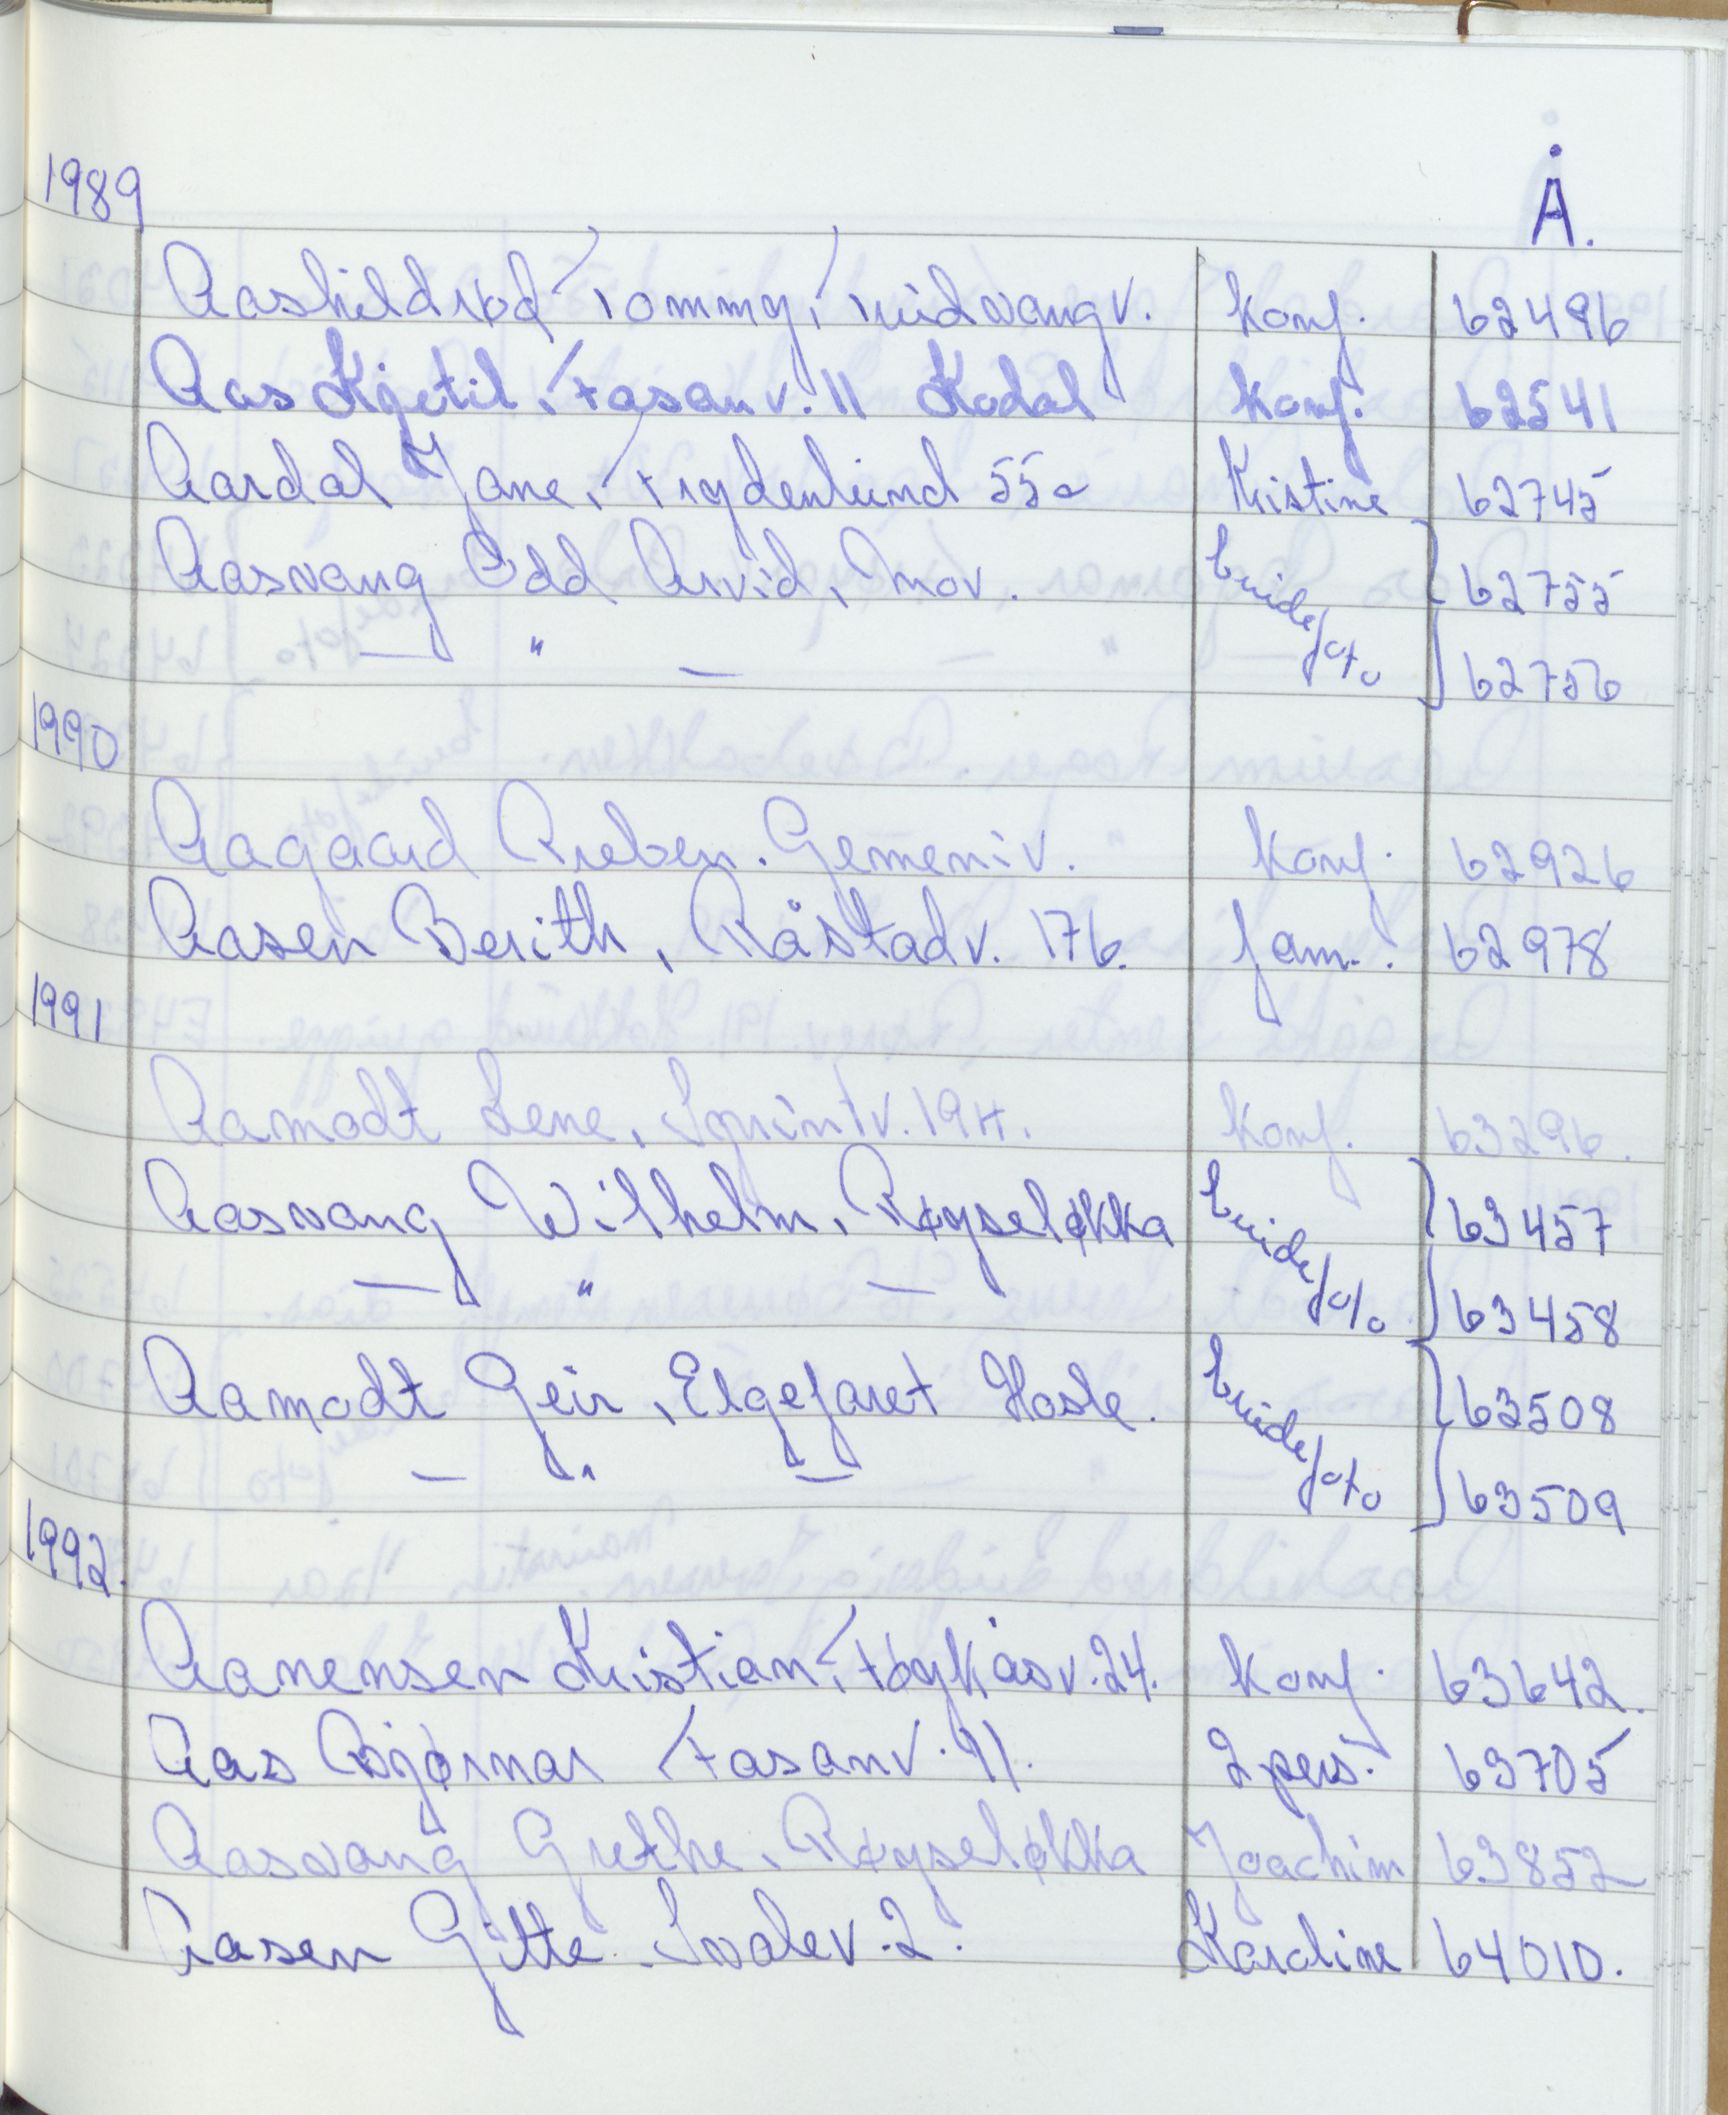 Å.
1989
Aashildrød Tommy, Midvangv. Konf. 62496
Aas Kjetil, Fasanv. 11 Kodal Konf. 62541
Aardal Jane, Frydenlund 55a Kristine 62745
Aasvang Odd Arvid, Mov. brudefoto 62755
— " — 62756
1990
Aagaard Preben. Gemeniv. Konf. 62926
Aasen Berith, Råstadv. 176. fam. 62978
1991
Aamodt Lene, Sprintv. 19H. Konf. 63296.
Aasvang Wilhelm, Røyseløkka brudefoto 63457
— " — 63458
Aamodt Geir, Elgefaret Hasle. brudefoto 63508
— " — 63509
1992.
Aanensen Kristian, Høykåsv. 24. Konf. 63642.
Aas Bjørnar Fasanv. 11. 2 pers. 63705
Aasvang Grethe, Røyseløkka Joachim 63852
Aasen Gitte. Svalev. 2. Karoline 64010.